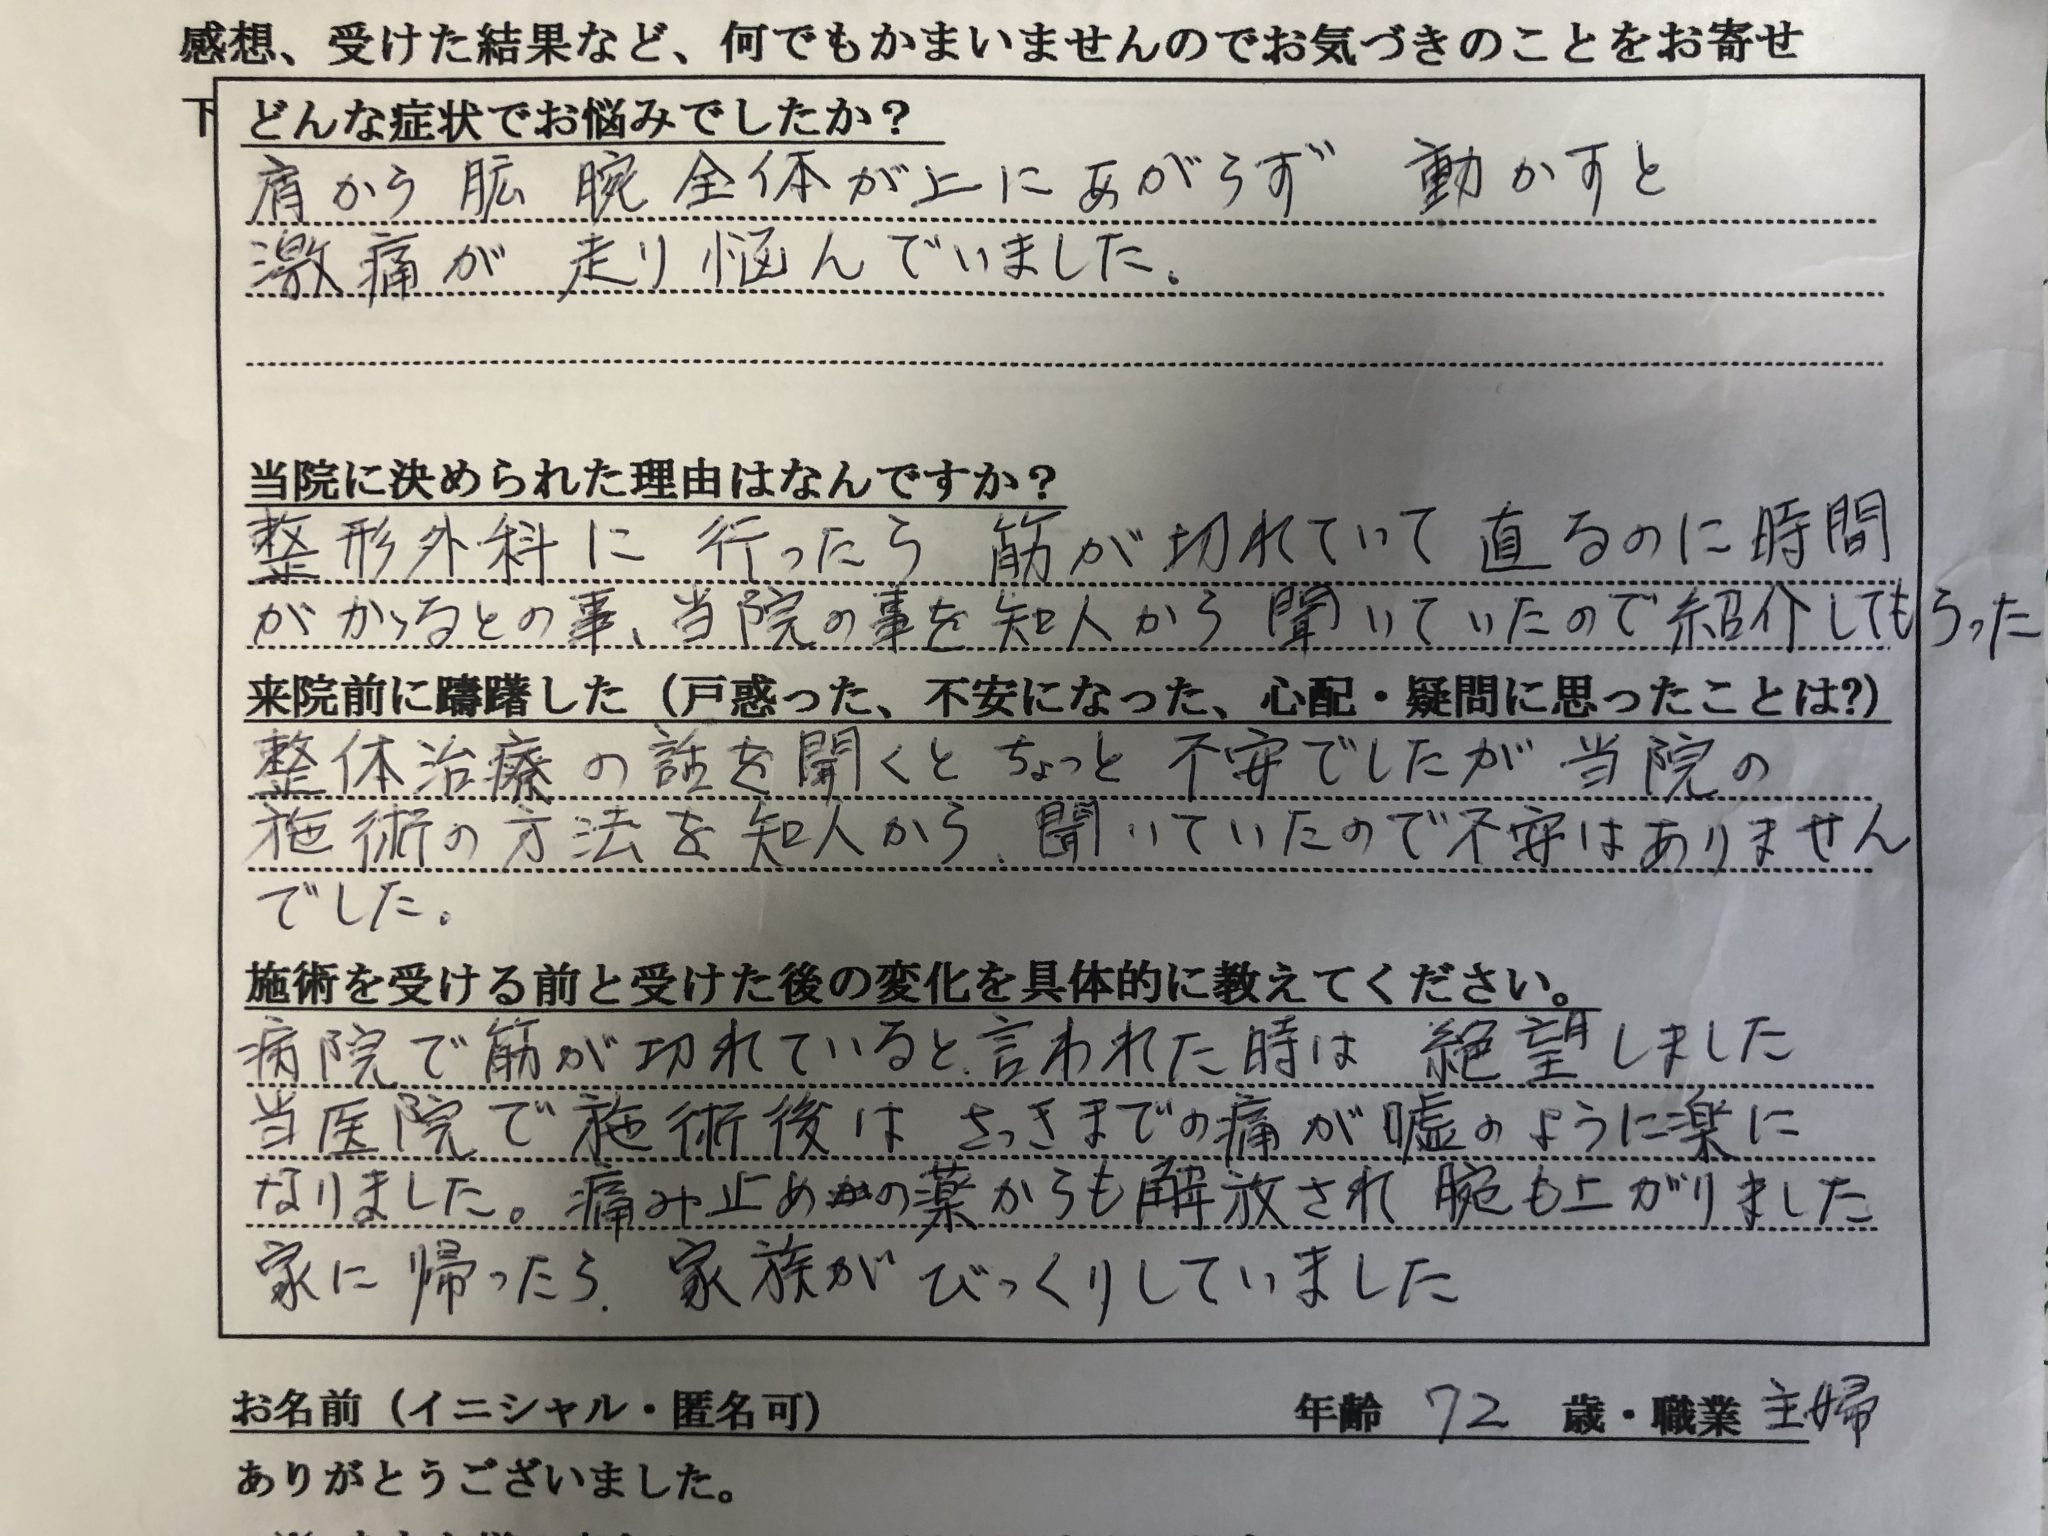 感想、受けた結果など、何でもかまいませんのでお気づきのことをお寄せ
下
どんな症状でお悩みでしたか？
肩から肱 腕 全体が上にあがらず 動かすと
激痛が 走り 悩んでいました。
当院に決められた理由はなんですか？
整形外科に 行ったら 筋が切れていて 直るのに時間
がかゝるとの事、当院の事を知人から 聞いていたので紹介してもらった
来院前に躊躇した（戸惑った、不安になった、心配・疑問に思ったことは?）
整体治療の話を聞くと ちょっと 不安でしたが 当院の
施術の方法を知人から、聞いていたので不安はありません
でした。
施術を受ける前と受けた後の変化を具体的に教えてください。
病院で筋が切れていると、言われた時は 絶望しました
当医院で施術後は さっきまでの痛が嘘のように楽に
なりました。痛み止めの薬からも解放され 腕も上がりました
家に帰ったら、家族がびっくりしていました
お名前（イニシャル・匿名可） 年齢 72 歳・職業 主婦
ありがとうございました。